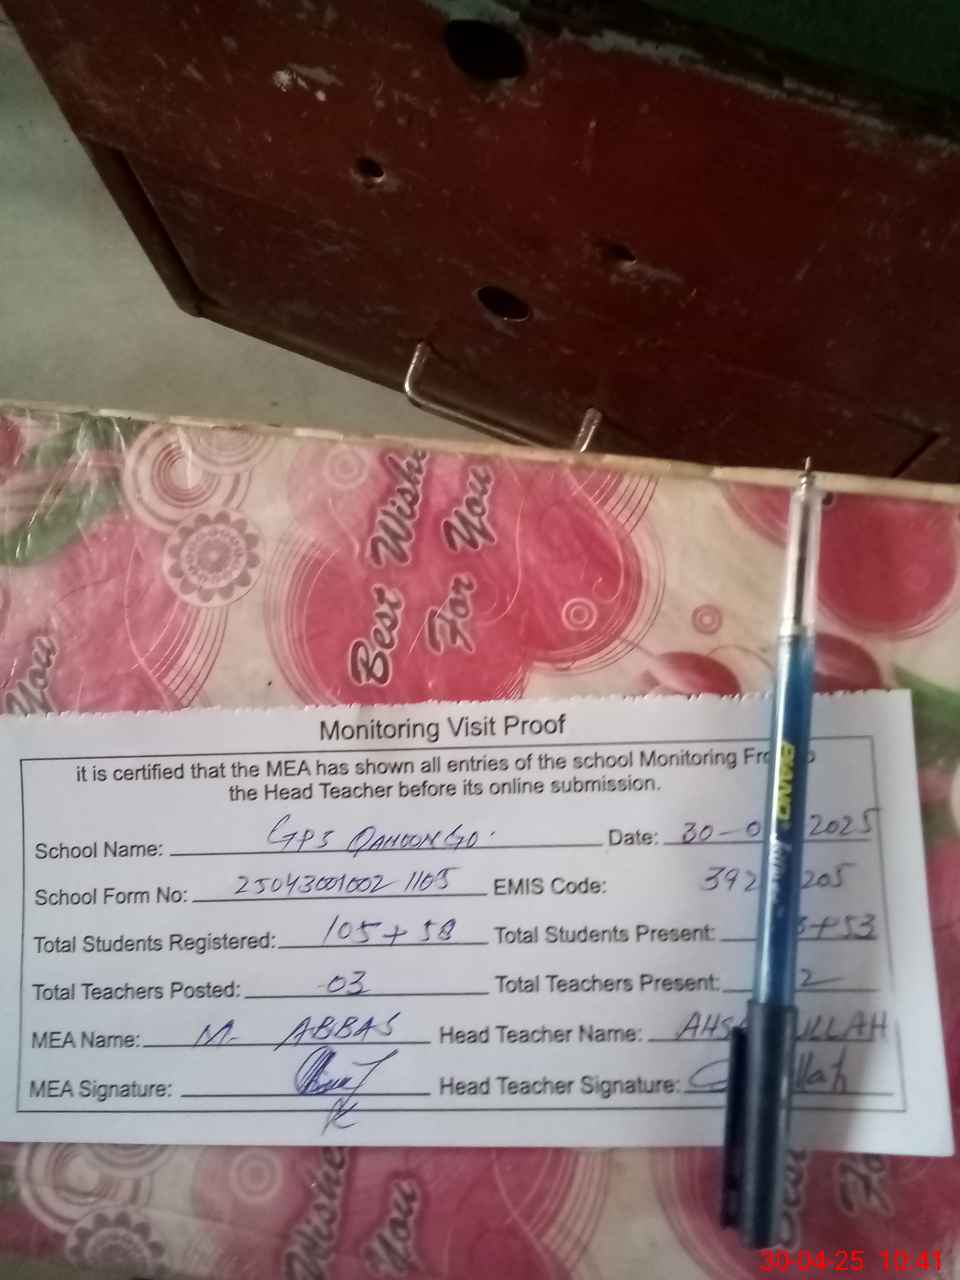 Best Wishe
For You
You
Monitoring Visit Proof
it is certified that the MEA has shown all entries of the school Monitoring
the Head Teacher before its online submission.
School Name: GPS QANOONGO. Date: 30-0 2025
School Form No: 25043001002 1105 EMIS Code: 392 205
Total Students Registered: 105+58 Total Students Present: 3+53
Total Teachers Posted: 03 Total Teachers Present: 2
MEA Name: M. ABBAS Head Teacher Name: AHS ULLAH
MEA Signature: Head Teacher Signature: llah
PIANO
Wishe
You
Best
Fo
30-04-25 10:41